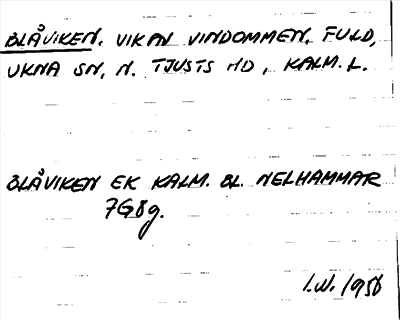 BLÅVIKEN. VIK AV VINDOMMEN, FULD,
UKNA SN, N. TJUSTS HD, KALM. L.
BLÅVIKEN EK KALM. BL. NELHAMMAR
7G8g.
I.W. 1958